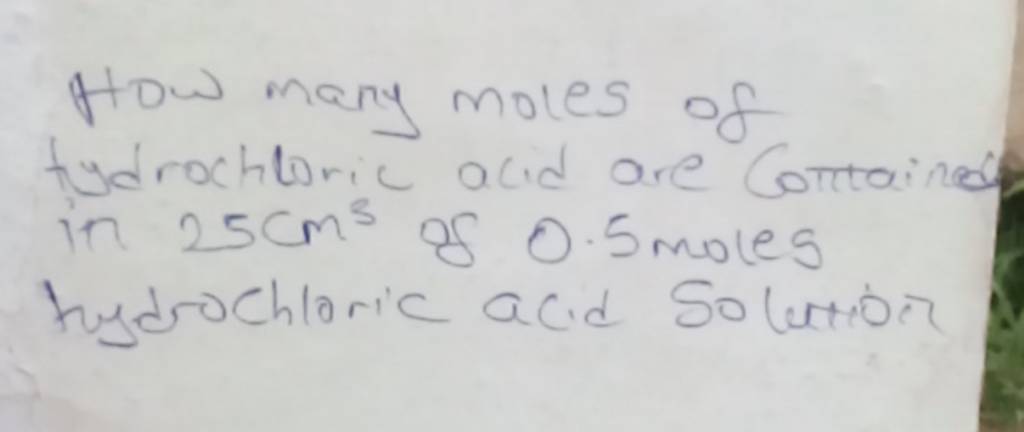 How many moles of
hydrochloric acid are Contained
in 25cm³ of 0.5moles
hydrochloric acid Solution